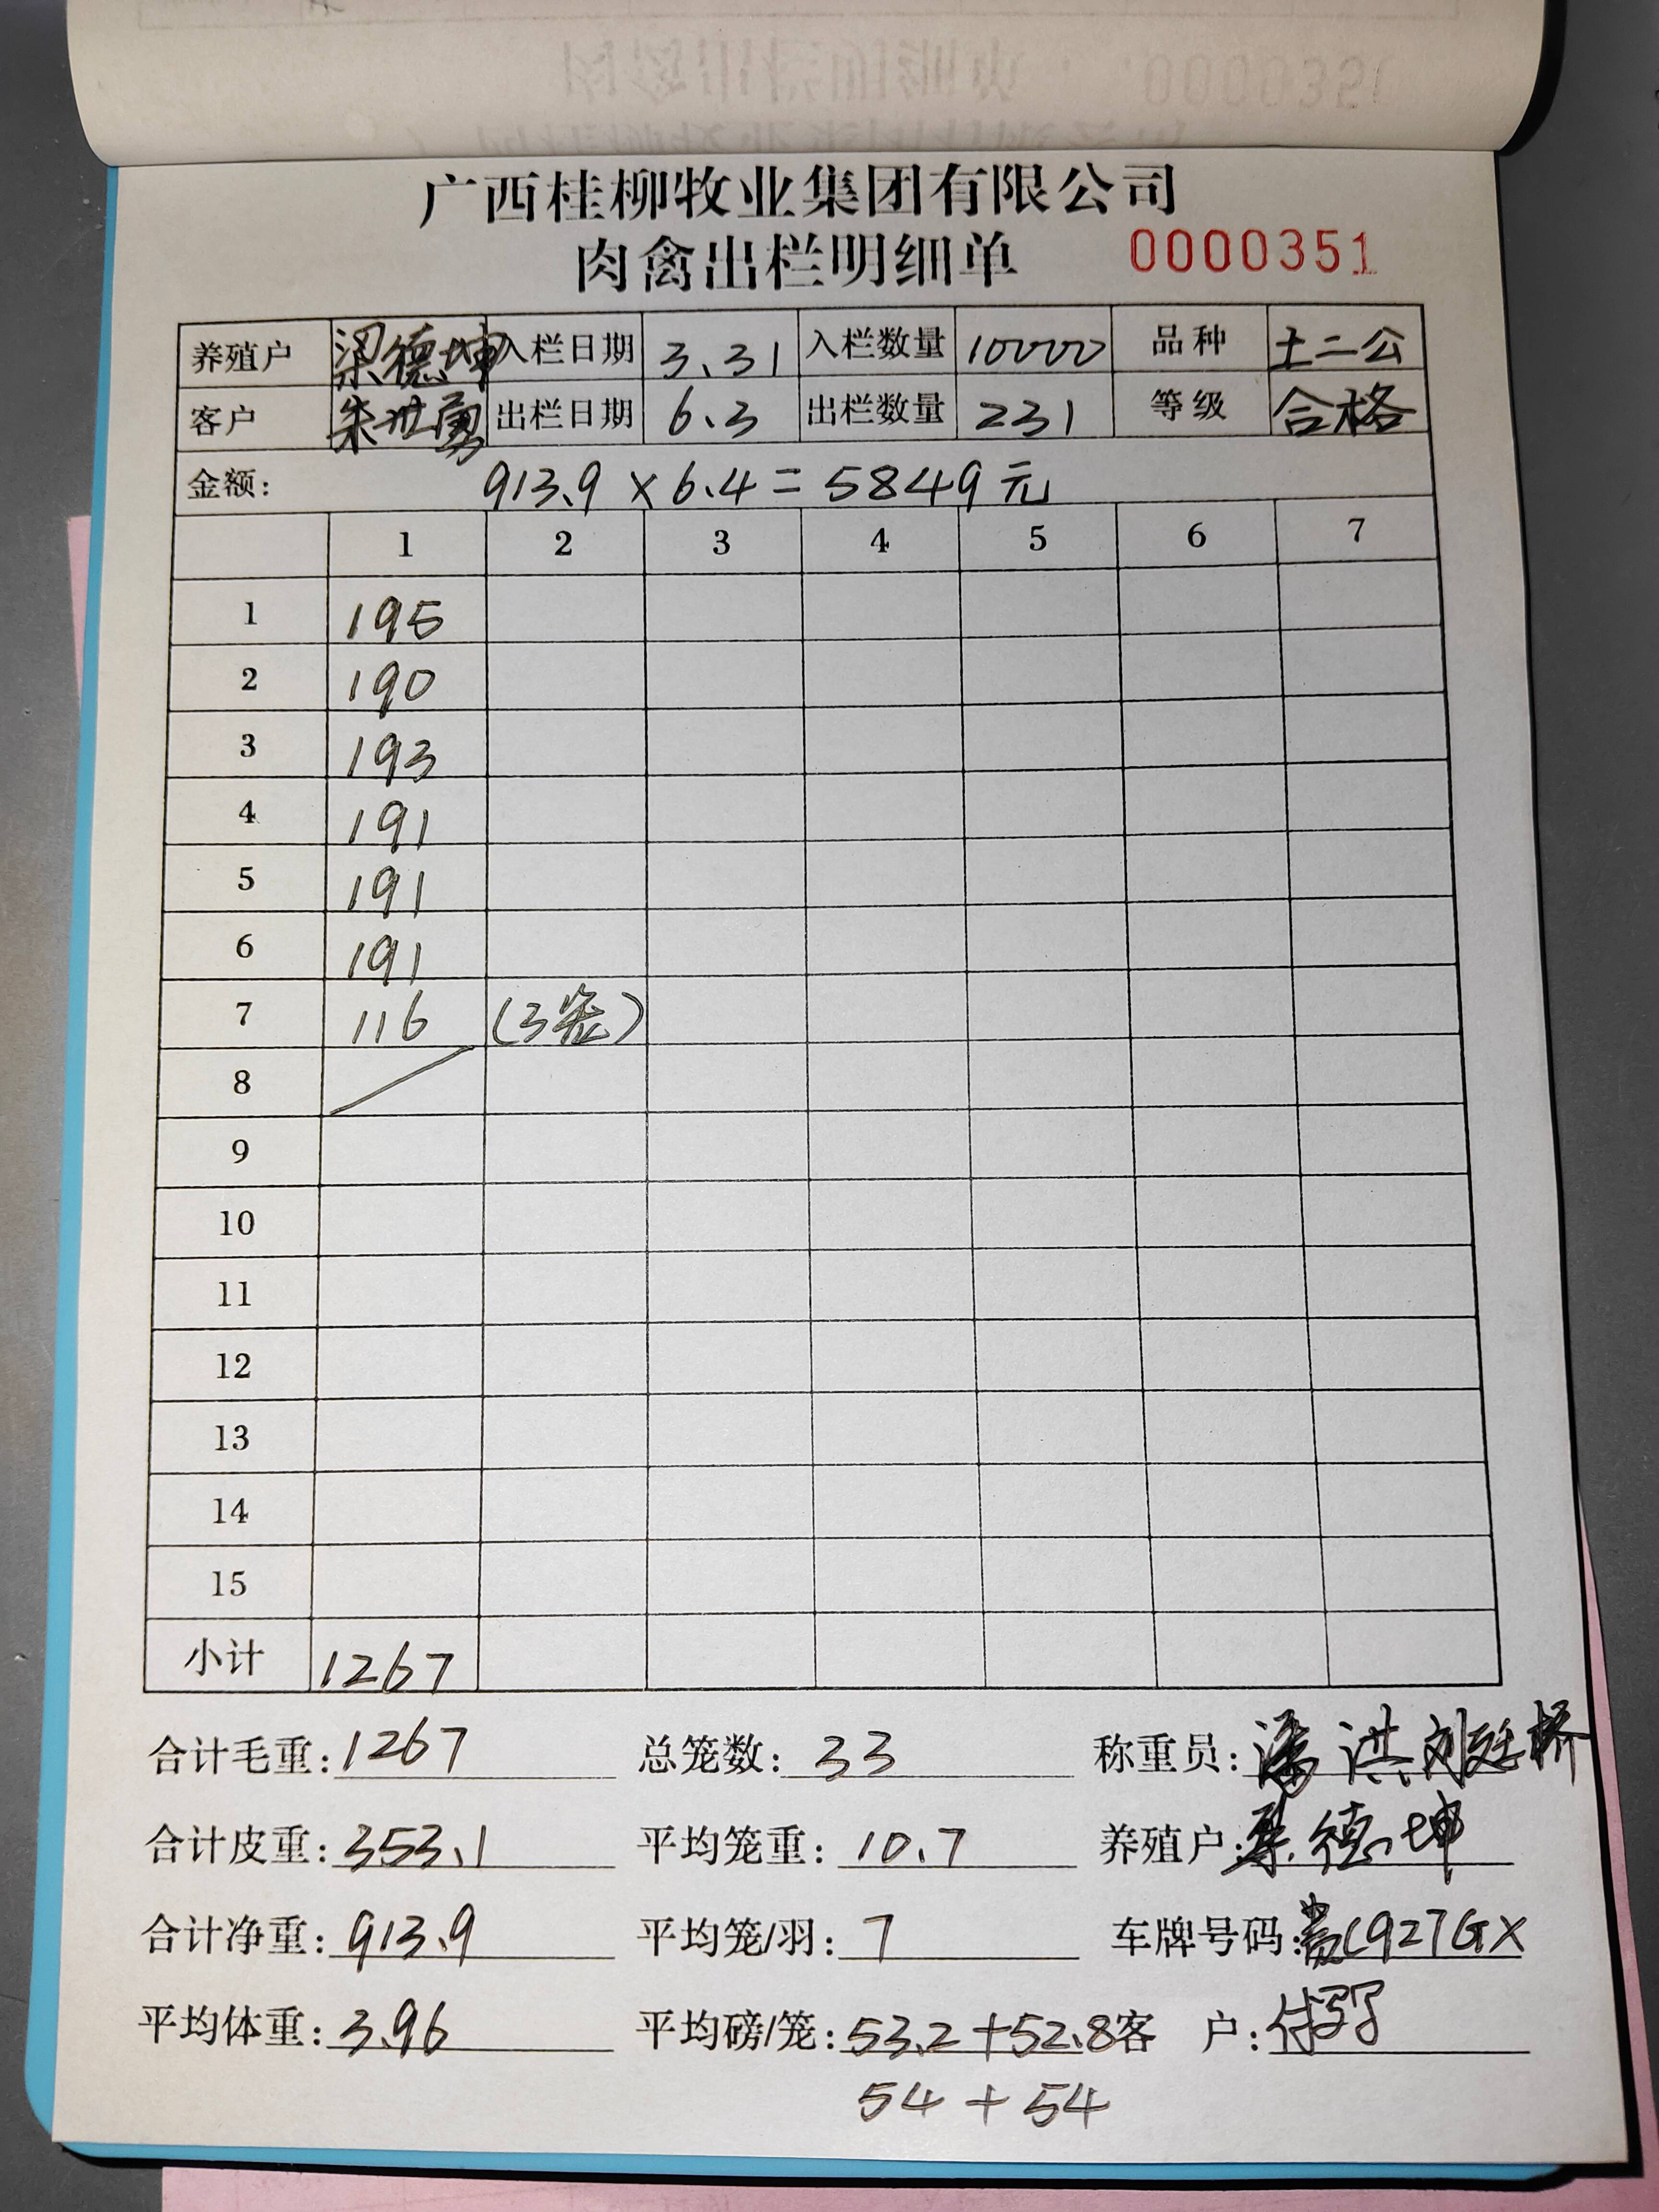 广西桂柳牧业集团有限公司
肉禽出栏明细单 0000351
养殖户 梁德坤 入栏日期 3.31 入栏数量 10000 品种 土二公
客户 朱世勇 出栏日期 6.3 出栏数量 231 等级 合格
金额: 913.9 × 6.4 = 5849元
1 2 3 4 5 6 7
1 195
2 190
3 193
4 191
5 191
6 191
7 116 (3笼)
8
9
10
11
12
13
14
15
小计 1267
合计毛重: 1267 总笼数: 33 称重员: 潘洪 刘廷桥
合计皮重: 353.1 平均笼重: 10.7 养殖户: 梁德坤
合计净重: 913.9 平均笼/羽: 7 车牌号码: 贵C927GX
平均体重: 3.96 平均磅/笼: 53.2+52.8 客 户:
54 + 54